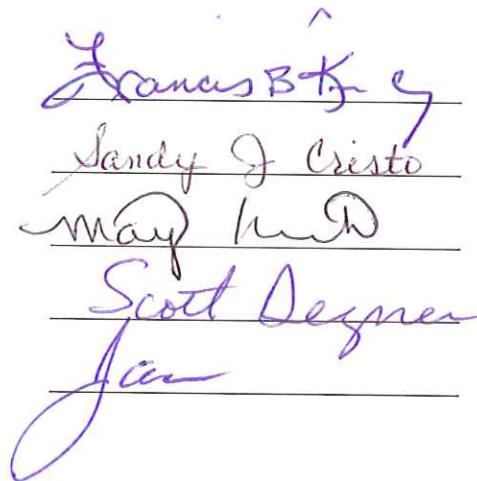 Francis B
Sandy J Cristo
May
Scott Degner